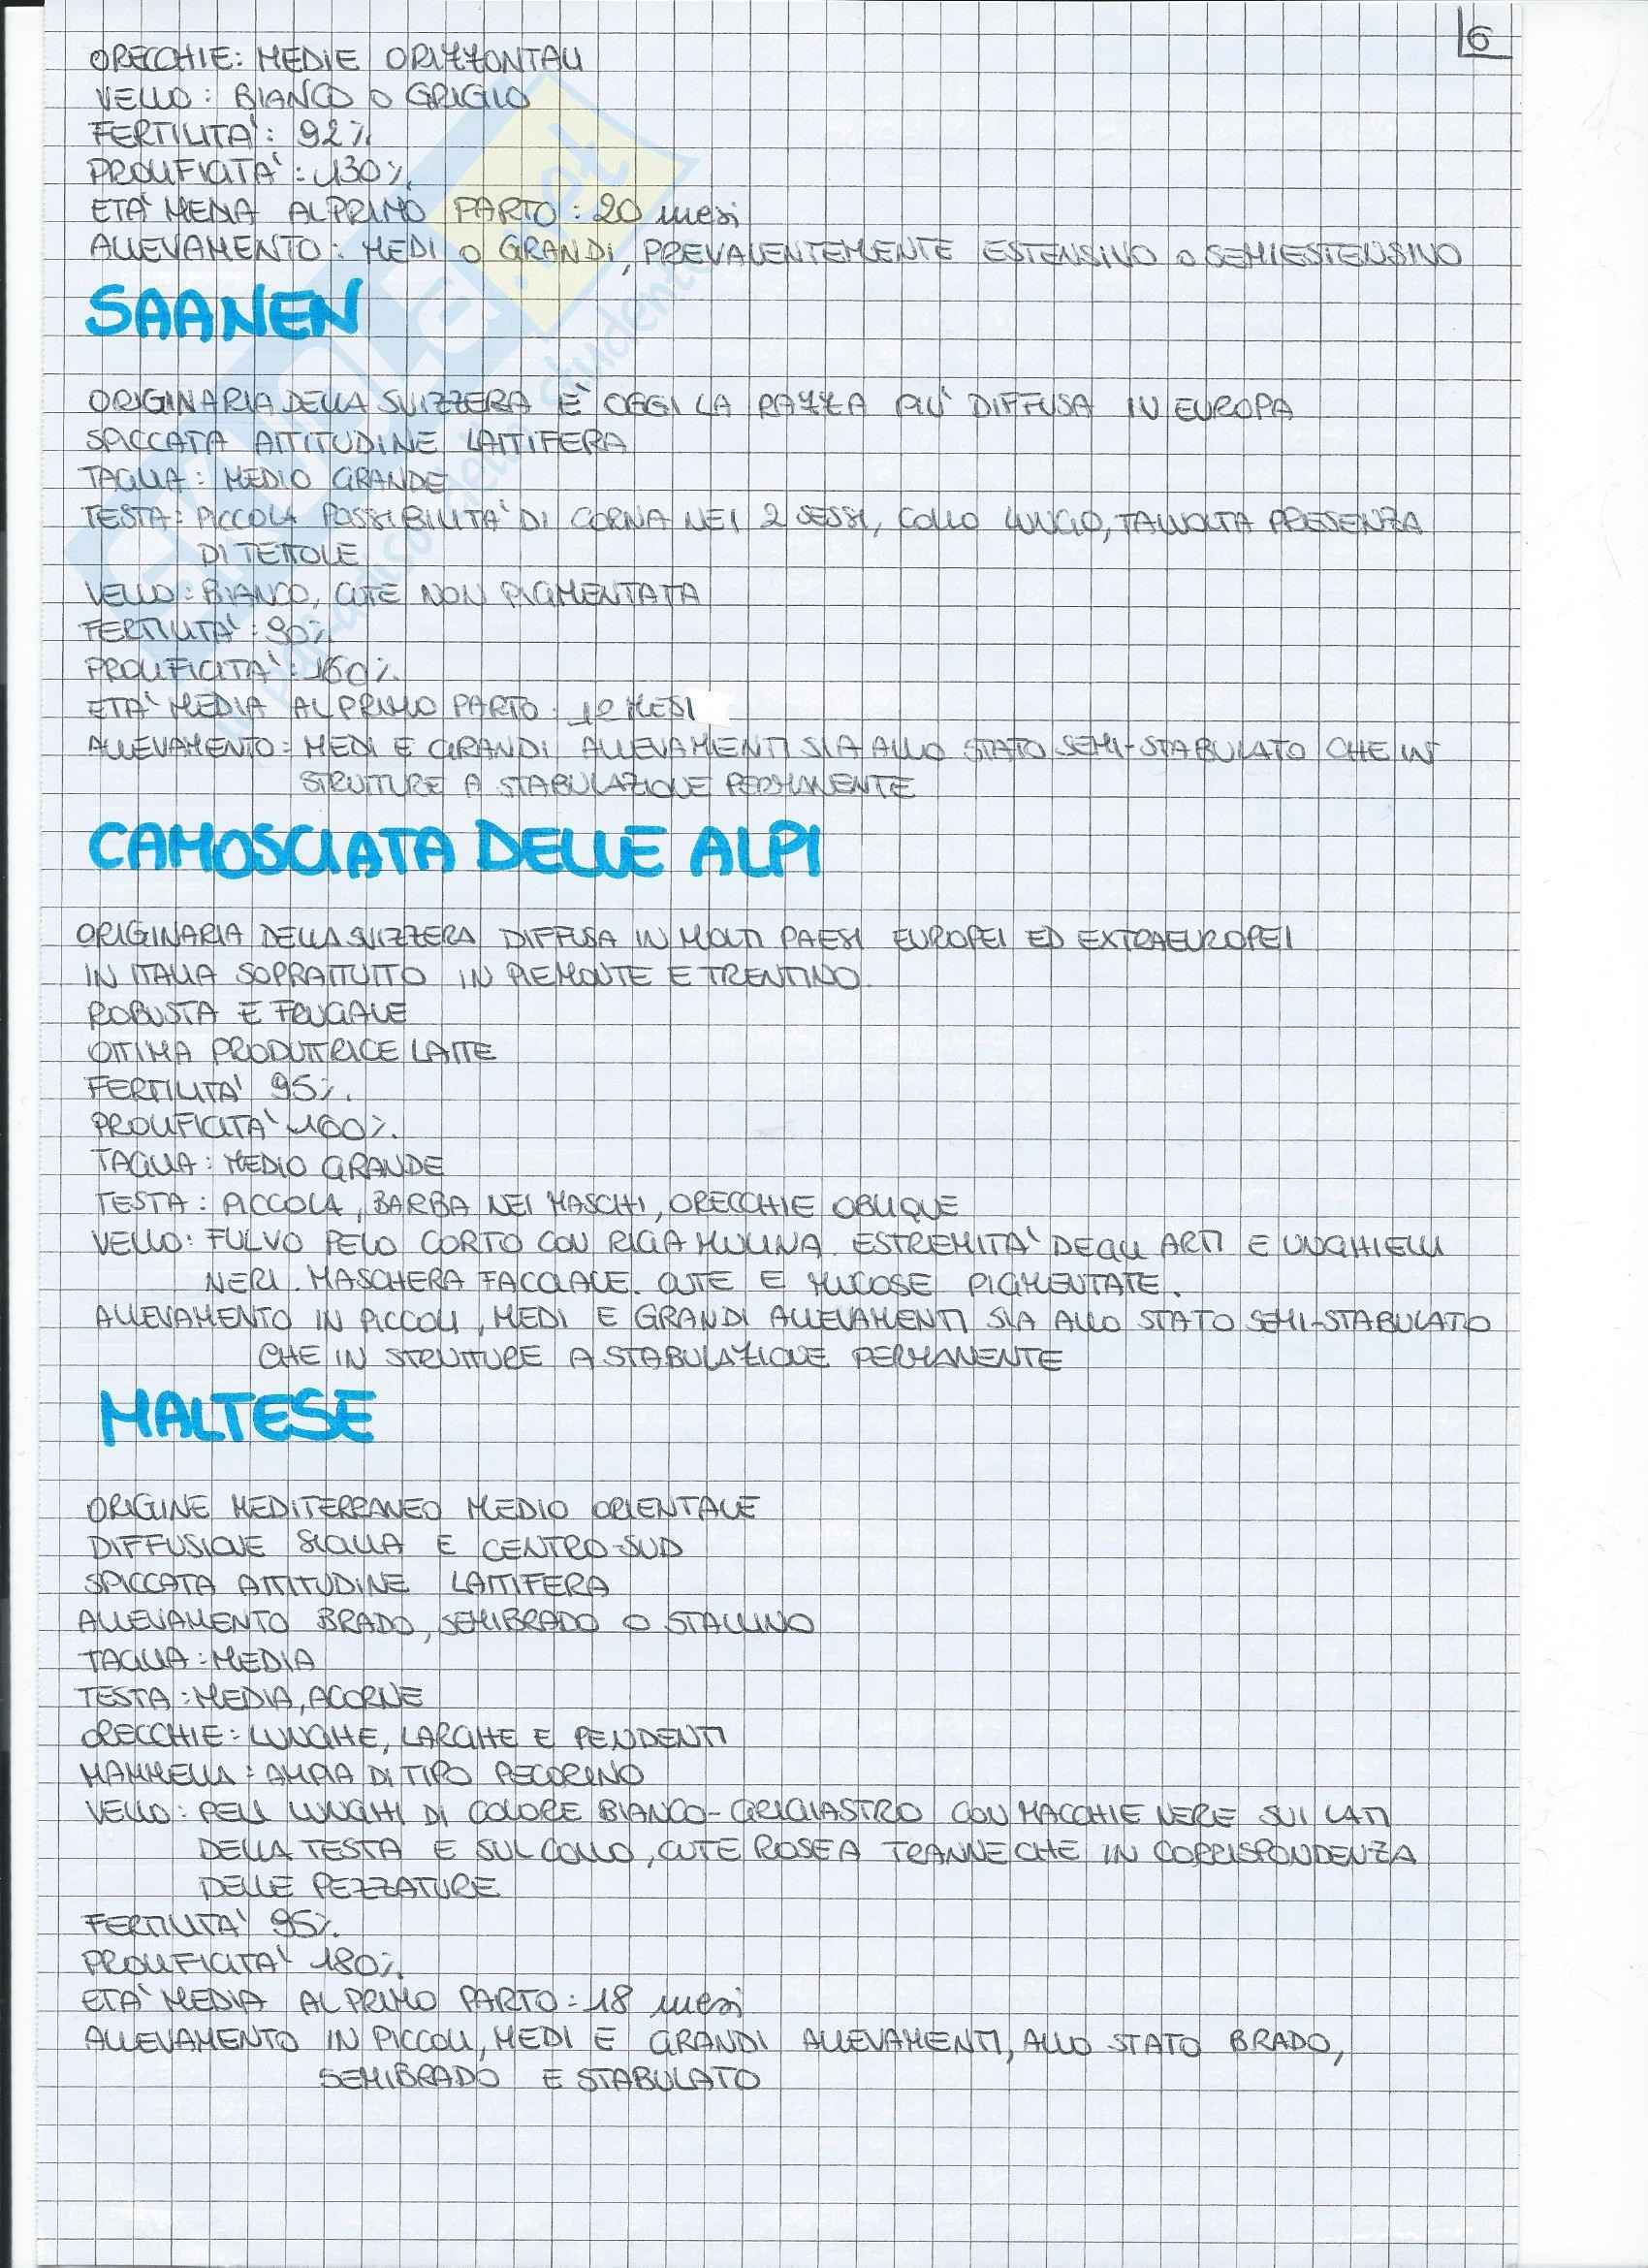 6
ORECCHIE: MEDIE ORIZZONTALI
VELLO: BIANCO O GRIGIO
FERTILITA': 92%
PROLIFICITA': 130%
ETA' MEDIA AL PRIMO PARTO: 20 mesi
ALLEVAMENTO: MEDI O GRANDI, PREVALENTEMENTE ESTENSIVO O SEMIESTENSIVO
SAANEN
ORIGINARIA DELLA SVIZZERA E' OGGI LA RAZZA PIU' DIFFUSA IN EUROPA
SPICCATA ATTITUDINE LATTIFERA
TAGLIA: MEDIO GRANDE
TESTA: PICCOLA POSSIBILITA' DI CORNA NEI 2 SESSI, COLLO LUNGO, TALVOLTA PRESENZA
DI TETTOLE
VELLO: BIANCO, CUTE NON PIGMENTATA
FERTILITA': 90%
PROLIFICITA': 160%
ETA' MEDIA AL PRIMO PARTO: 12 MESI
ALLEVAMENTO: MEDI E GRANDI ALLEVAMENTI SIA ALLO STATO SEMI-STABULATO CHE IN
STRUTTURE A STABULAZIONE PERMANENTE
CAMOSCIATA DELLE ALPI
ORIGINARIA DELLA SVIZZERA DIFFUSA IN MOLTI PAESI EUROPEI ED EXTRAEUROPEI
IN ITALIA SOPRATTUTTO IN PIEMONTE E TRENTINO.
ROBUSTA E FRUGALE
OTTIMA PRODUTTRICE LATTE
FERTILITA' 95%.
PROLIFICITA' 160%.
TAGLIA: MEDIO GRANDE
TESTA: PICCOLA, BARBA NEI MASCHI, ORECCHIE OBLIQUE
VELLO: FULVO PELO CORTO CON RIGA MULINA. ESTREMITA' DEGLI ARTI E UNGHIELLI
NERI. MASCHERA FACCIALE. CUTE E MUCOSE PIGMENTATE.
ALLEVAMENTO IN PICCOLI, MEDI E GRANDI ALLEVAMENTI SIA ALLO STATO SEMI-STABULATO
CHE IN STRUTTURE A STABULAZIONE PERMANENTE
MALTESE
ORIGINE MEDITERRANEO MEDIO ORIENTALE
DIFFUSIONE SICILIA E CENTRO-SUD
SPICCATA ATTITUDINE LATTIFERA
ALLEVAMENTO BRADO, SEMIBRADO O STALLINO
TAGLIA: MEDIA
TESTA: MEDIA, ACORNE
ORECCHIE: LUNGHE, LARGHE E PENDENTI
MAMMELLA: AMPIA DI TIPO PECORINO
VELLO: PELI LUNGHI DI COLORE BIANCO-GRIGIASTRO CON MACCHIE NERE SUI LATI
DELLA TESTA E SUL COLLO, CUTE ROSEA TRANNE CHE IN CORRISPONDENZA
DELLE PEZZATURE
FERTILITA' 95%.
PROLIFICITA' 180%
ETA' MEDIA AL PRIMO PARTO: 18 mesi
ALLEVAMENTO IN PICCOLI, MEDI E GRANDI ALLEVAMENTI, ALLO STATO BRADO,
SEMIBRADO E STABULATO